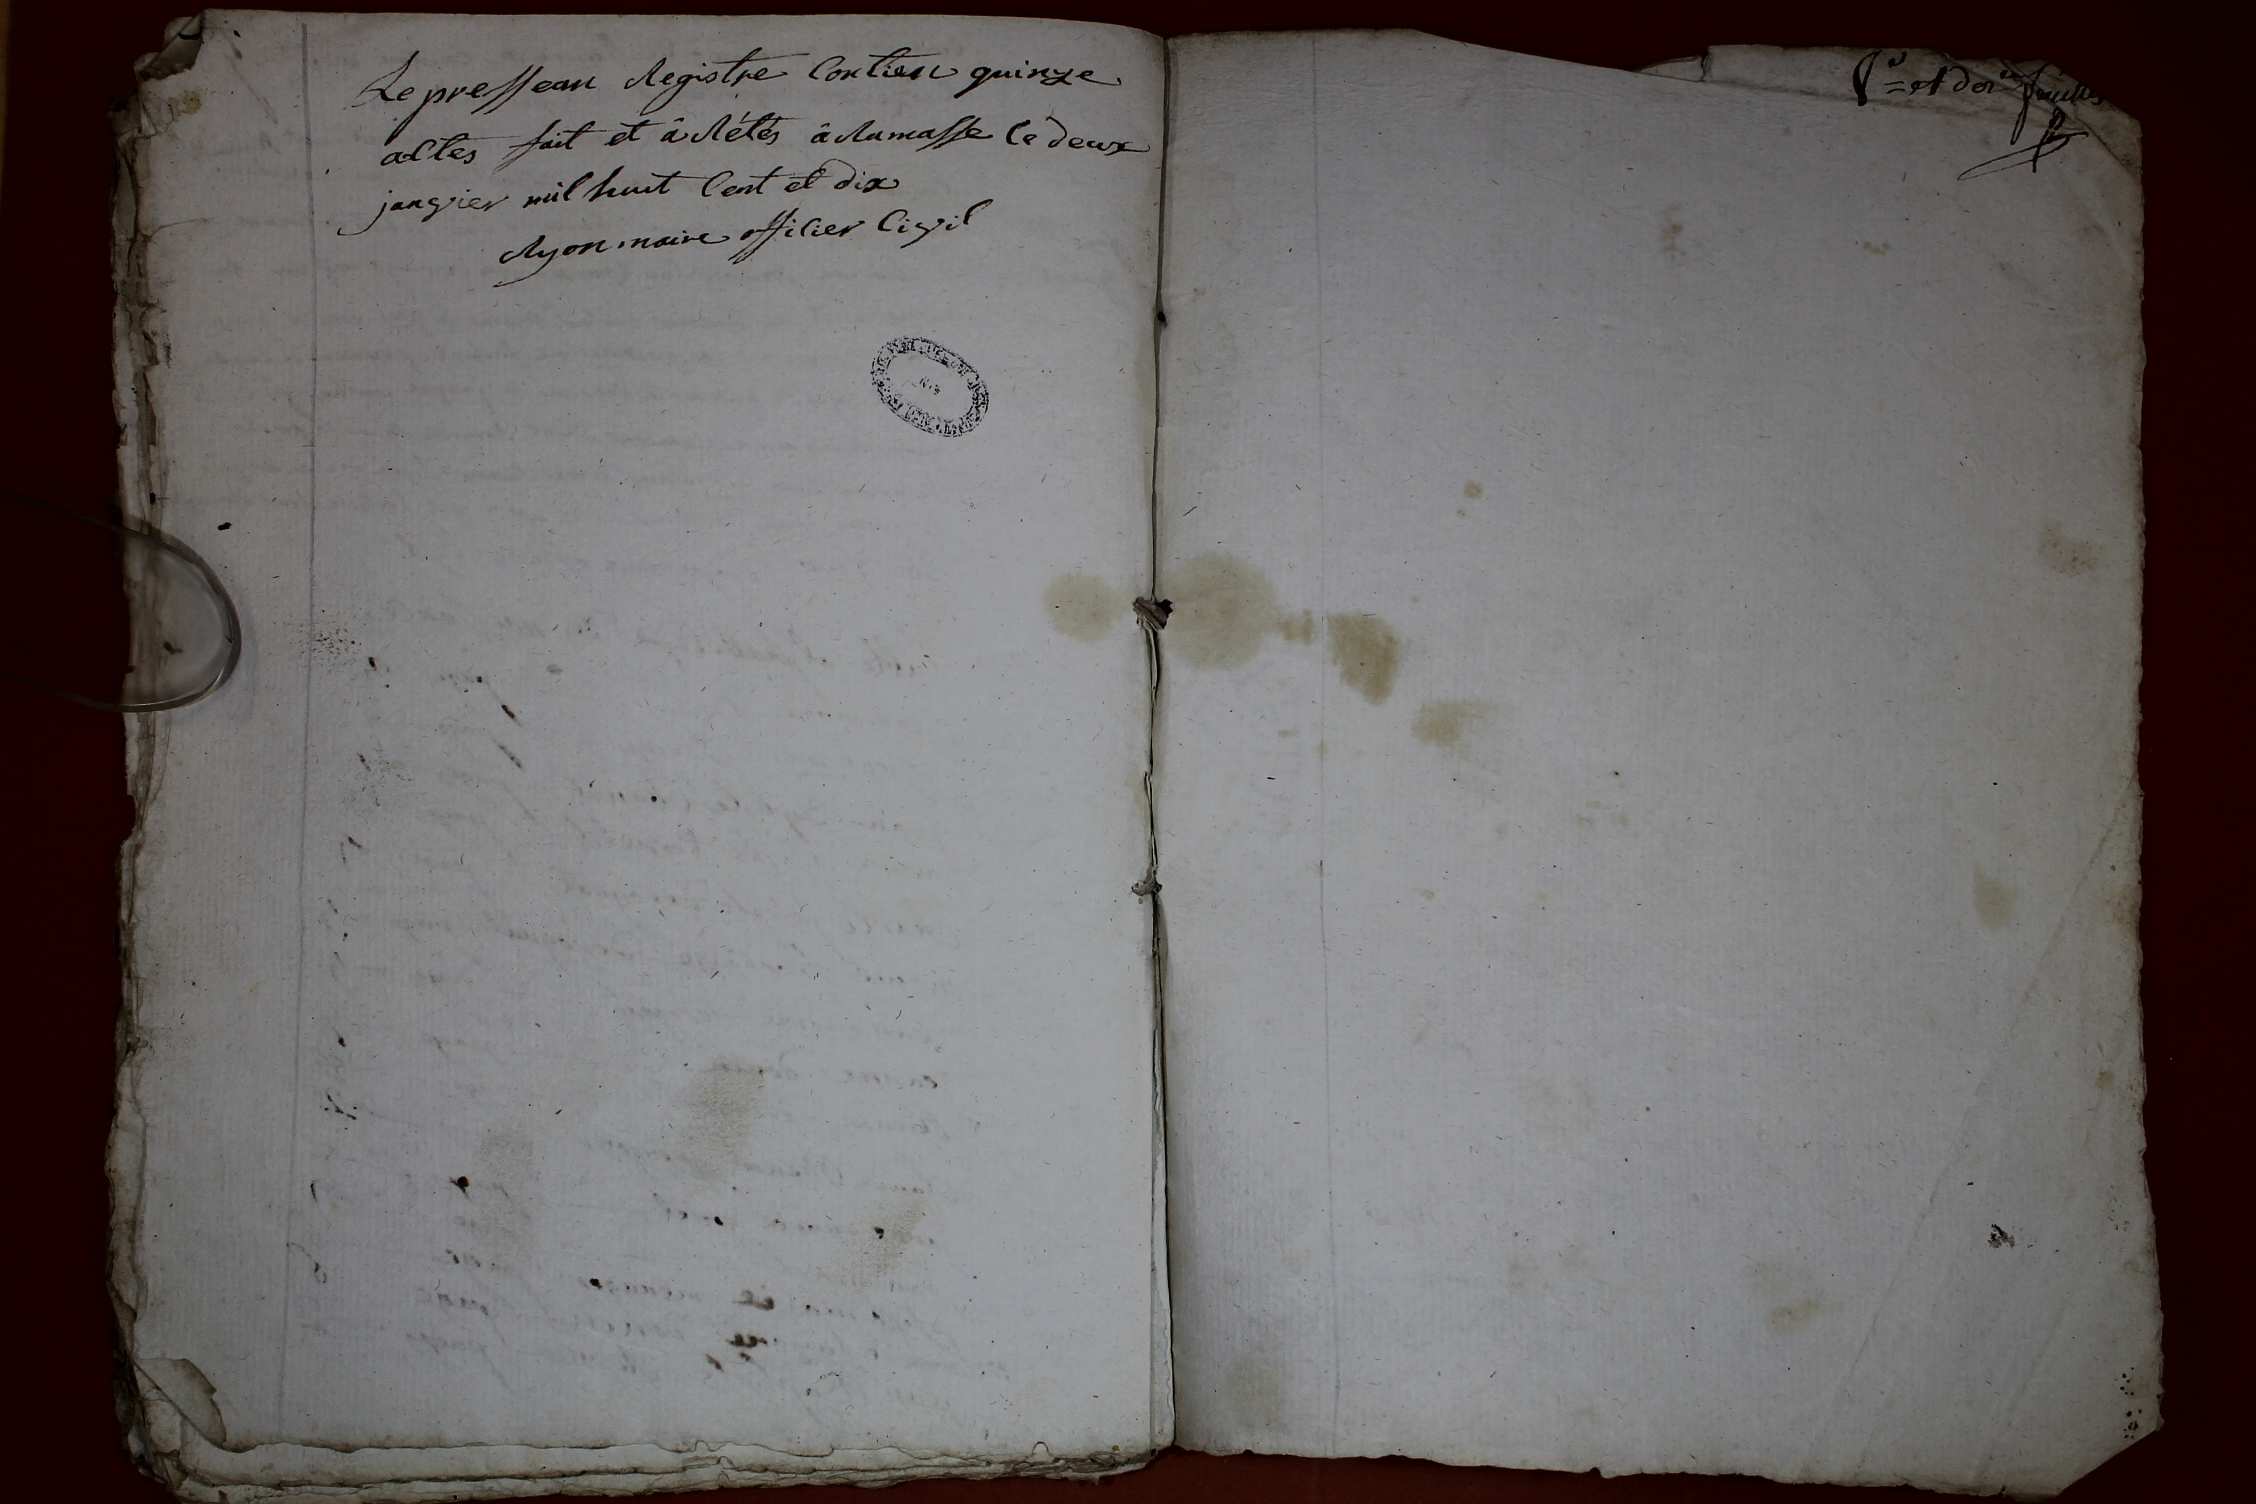 Le pressean Registre Contien quinze
actes fait et âRétés âRumasse le deux
janvier mil huit Cent et dix
Ryon maire officier Civil
et der feuillet